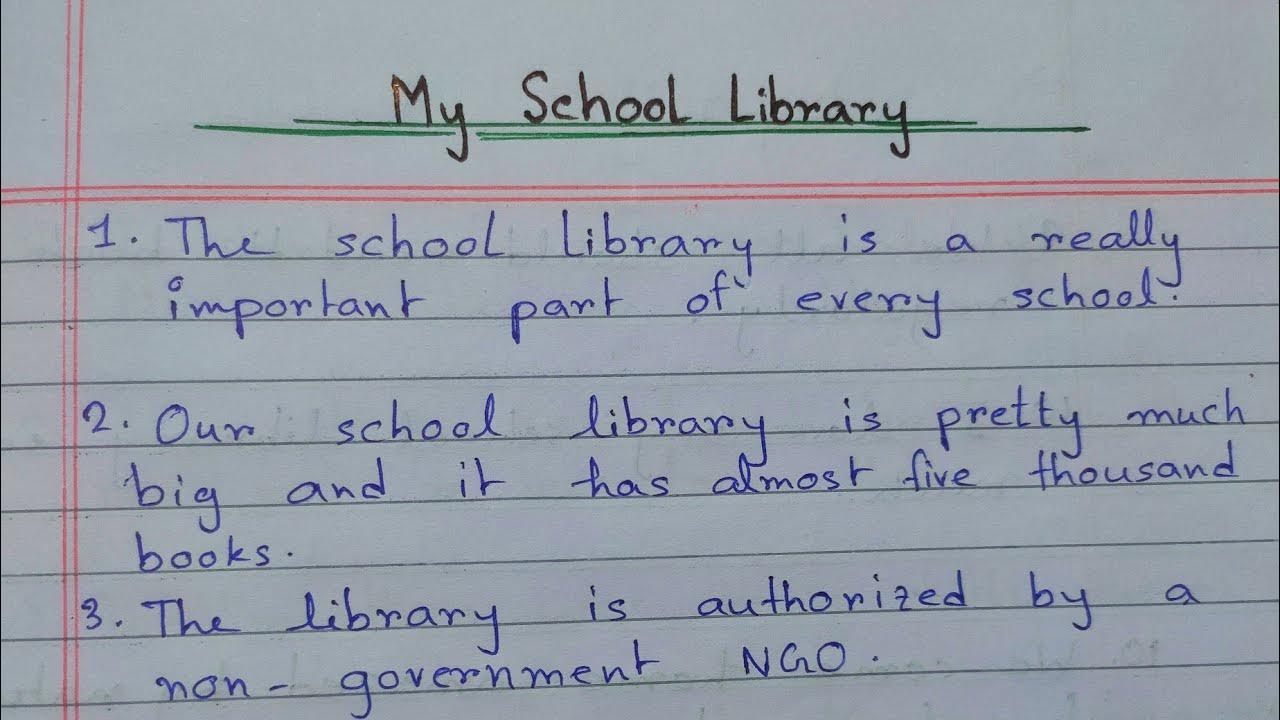 My School Library
1. The school library is a really
important part of every school.
2. Our school library is pretty much
big and it has almost five thousand
books.
3. The library is authorized by a
non-government NGO.